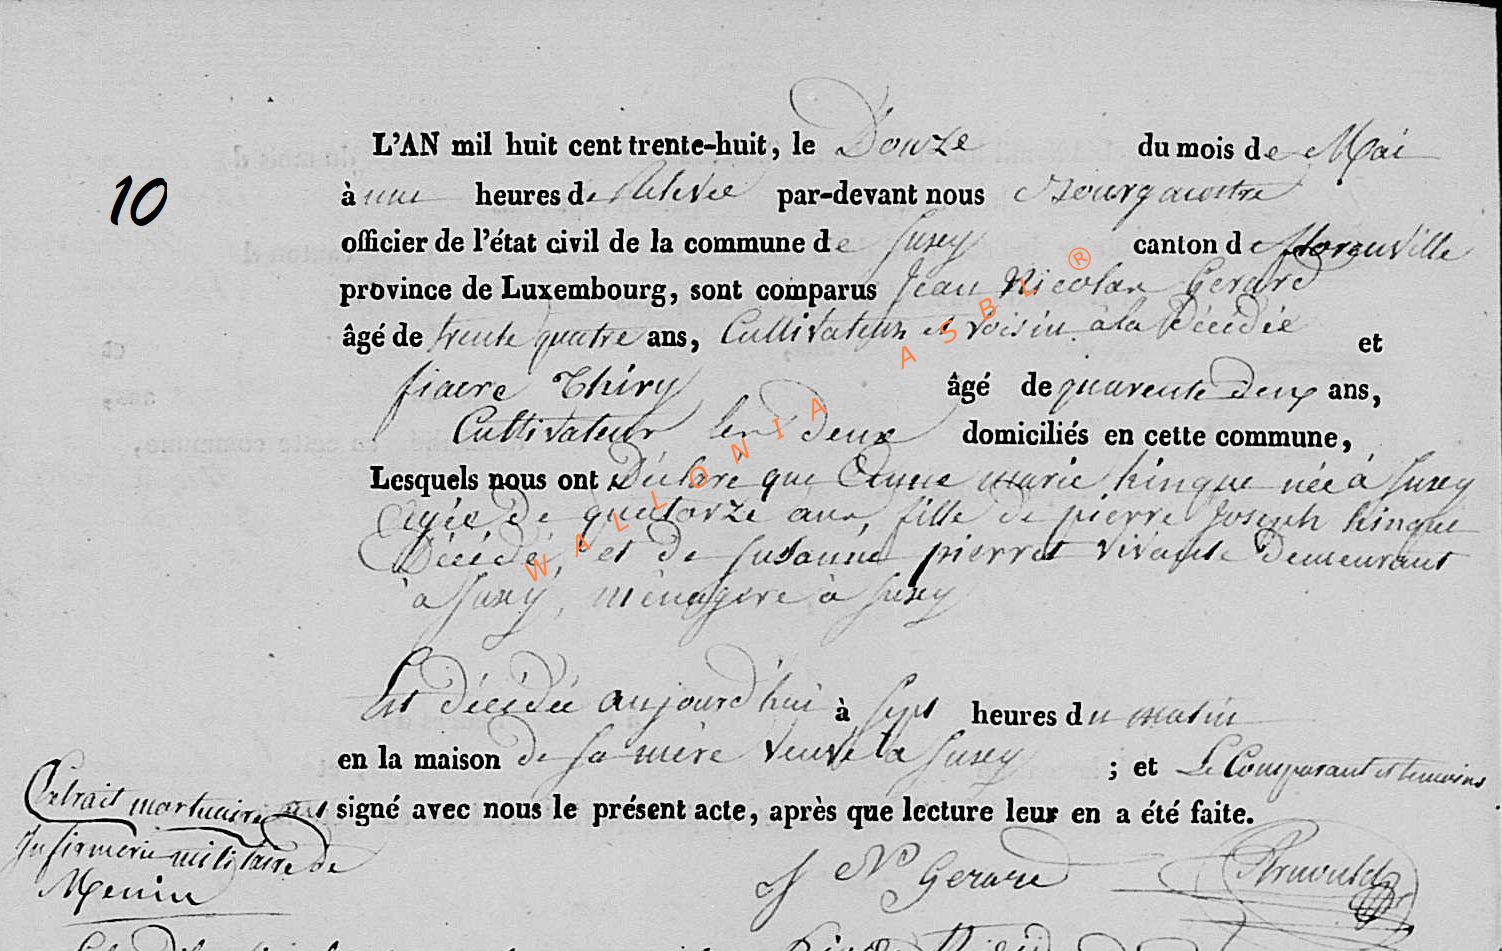 L'AN mil huit cent trente-huit, le Douze du mois de Mai
10
à une heures de Relevée par-devant nous Bourgmestre
officier de l'état civil de la commune de Suxey canton de florenville
province de Luxembourg, sont comparus Jean Nicolas Gerard
âgé de trente quatre ans, Cultivateur et Voisin à la Décédée et
fiacre Thiry âgé de quarente deux ans,
Cultivateur les deux domiciliés en cette commune,
Lesquels nous ont Déclaré que Anne marie hinque née à Suxey
Agée de quatorze ans, fille de pierre Joseph hinque
Décédé, et de Susanne pierret vivante Demeurant
à Suxy, ménagere à Suxey
Est décédée aujourd'hui à Sept heures du matin
en la maison de Sa mère veuve à Suxey ; et Le Comparant et temoins
Extrait mortuaire
ont signé avec nous le présent acte, après que lecture leur en a été faite.
Infirmerie militaire de
Menin
J N Gerard
WALLONIA ASBL ®